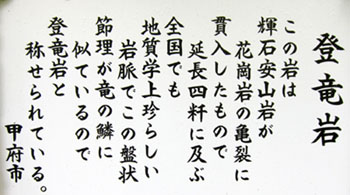 登竜岩
この岩は
輝石安山岩が
花崗岩の亀裂に
貫入したもので
延長四粁に及ぶ
全国でも
地質学上珍らしい
岩脈でこの盤状
節理が竜の鱗に
似ているので
登竜岩と
称せられている。
甲府市